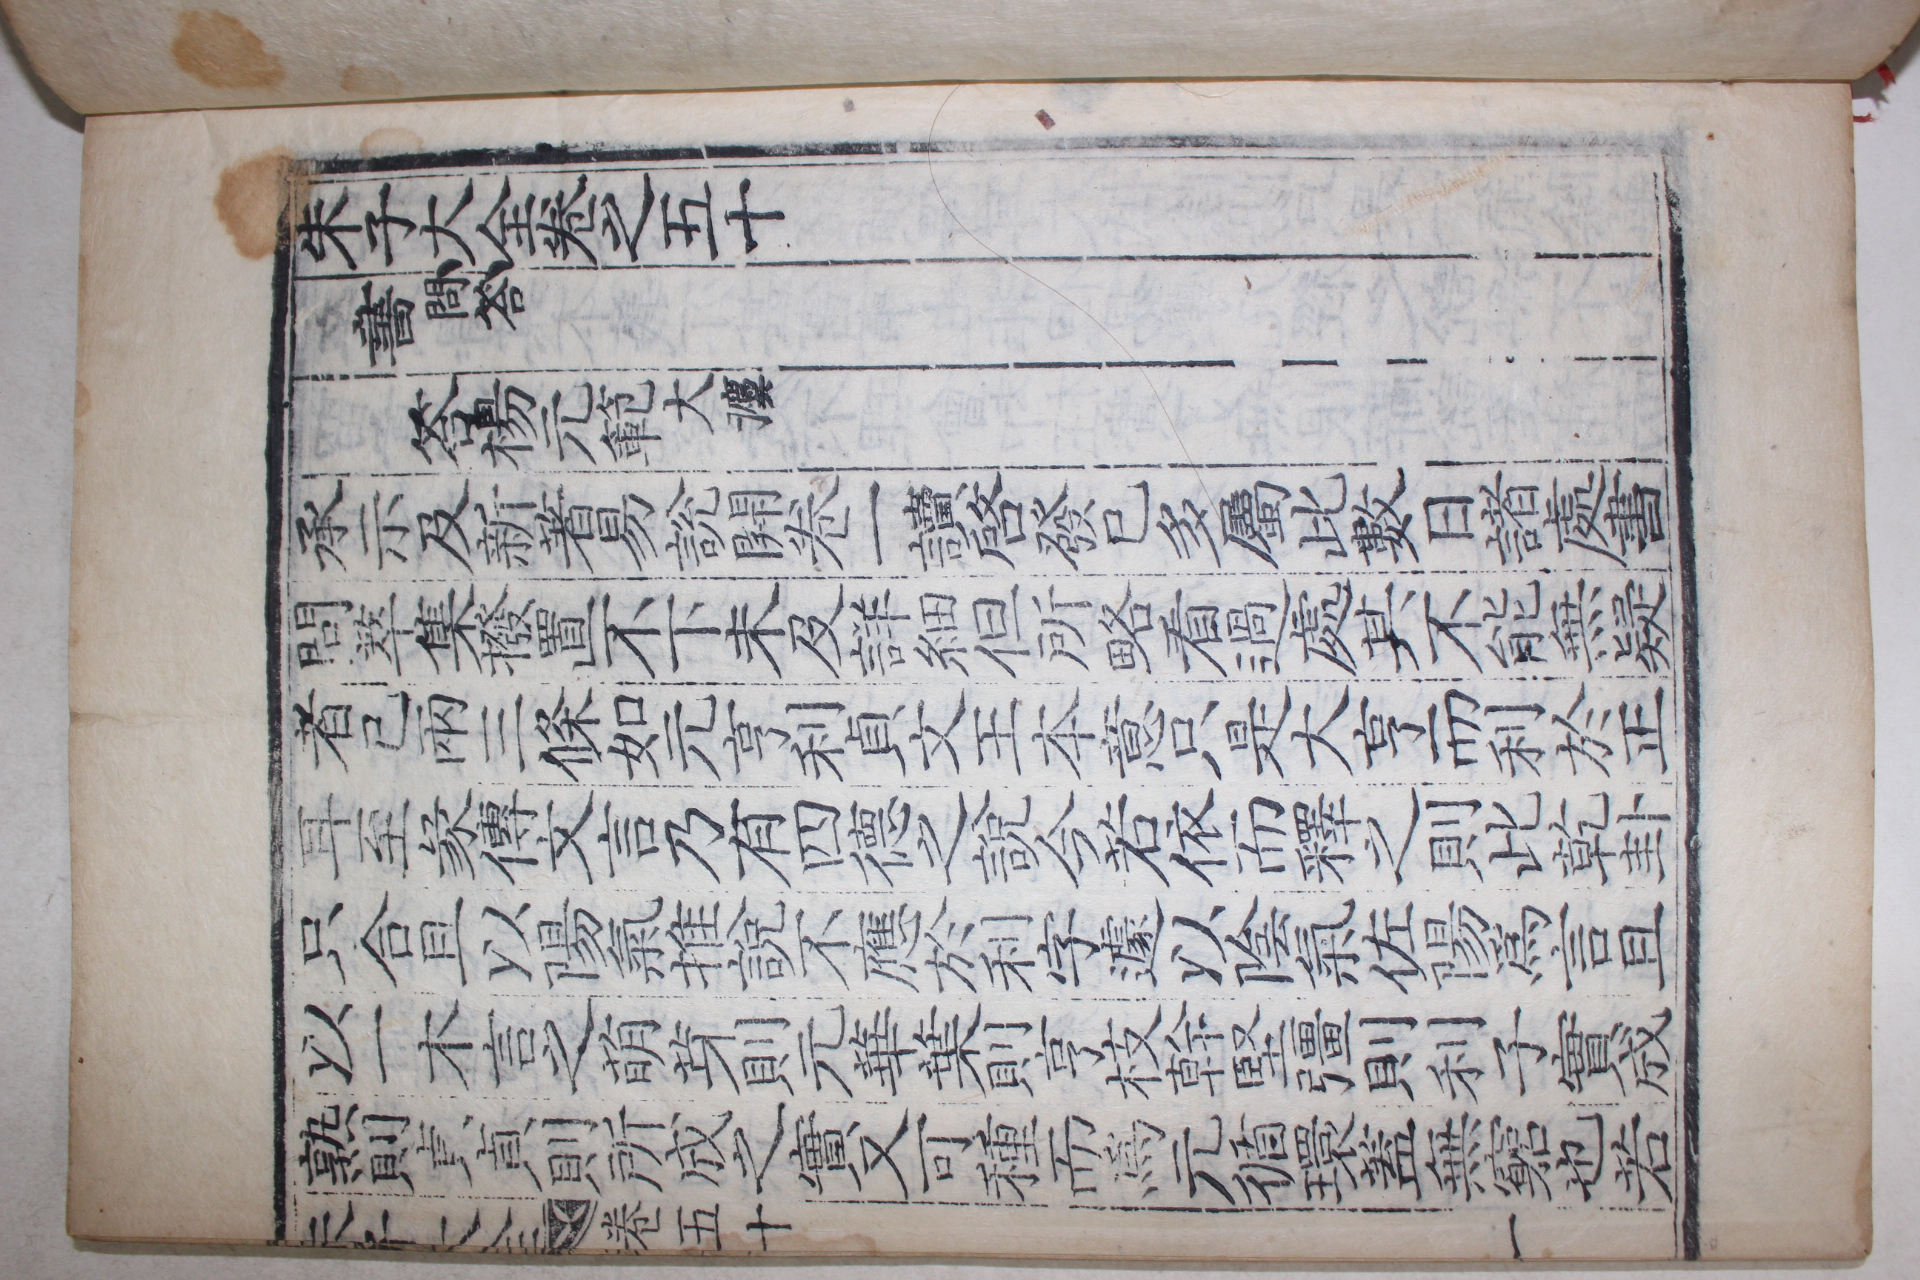 朱子大全卷之五十
書問答
答楊元範大灋
承示及新著易說開卷一讀啓發已多屬此數日諸處書
問遝集撥置不下未及詳細但所略看過處其不能無疑
者已兩三條如元亨利貞文王本意只是大亨而利於正
耳至彖傳文言乃有四德之說今若依而釋之則此乾卦
只合且以陽氣推說不應於利字遽以陰氣佐陽爲言且
以一木言之萌芽則元華葉則亨枝榦堅彊則利子實成
熟則貞貞則所成之實又可種而爲元循環蓋無窮也若
朱子大全 卷五十 一